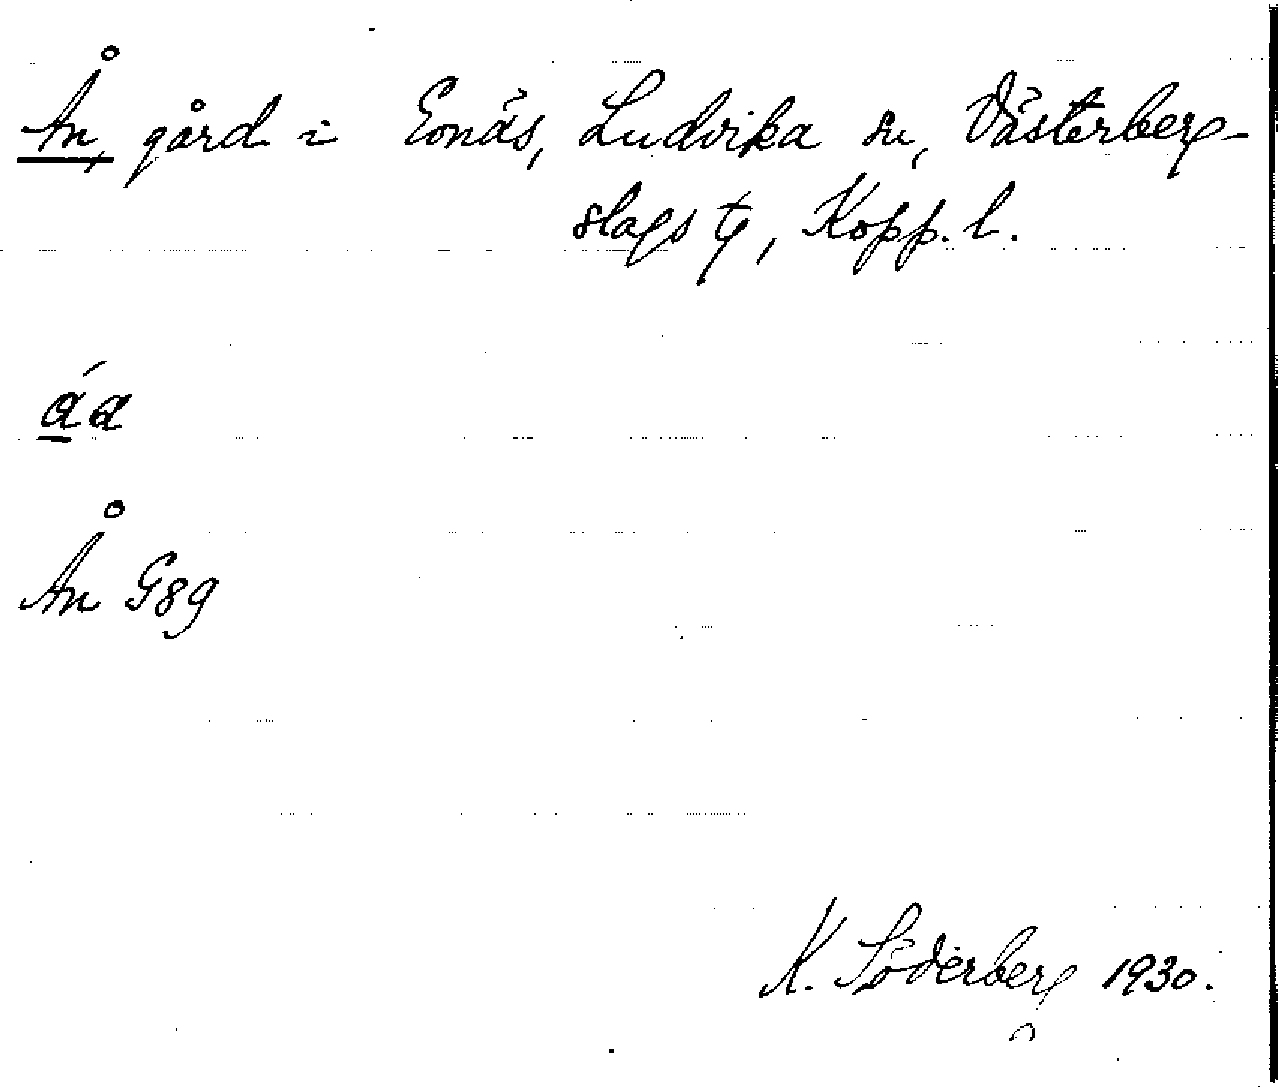 Ån, gård i Eonäs, Ludvika sn, Västerberg-
slags tg, Kopp. l.
Ån G89
K. Söderberg 1930.